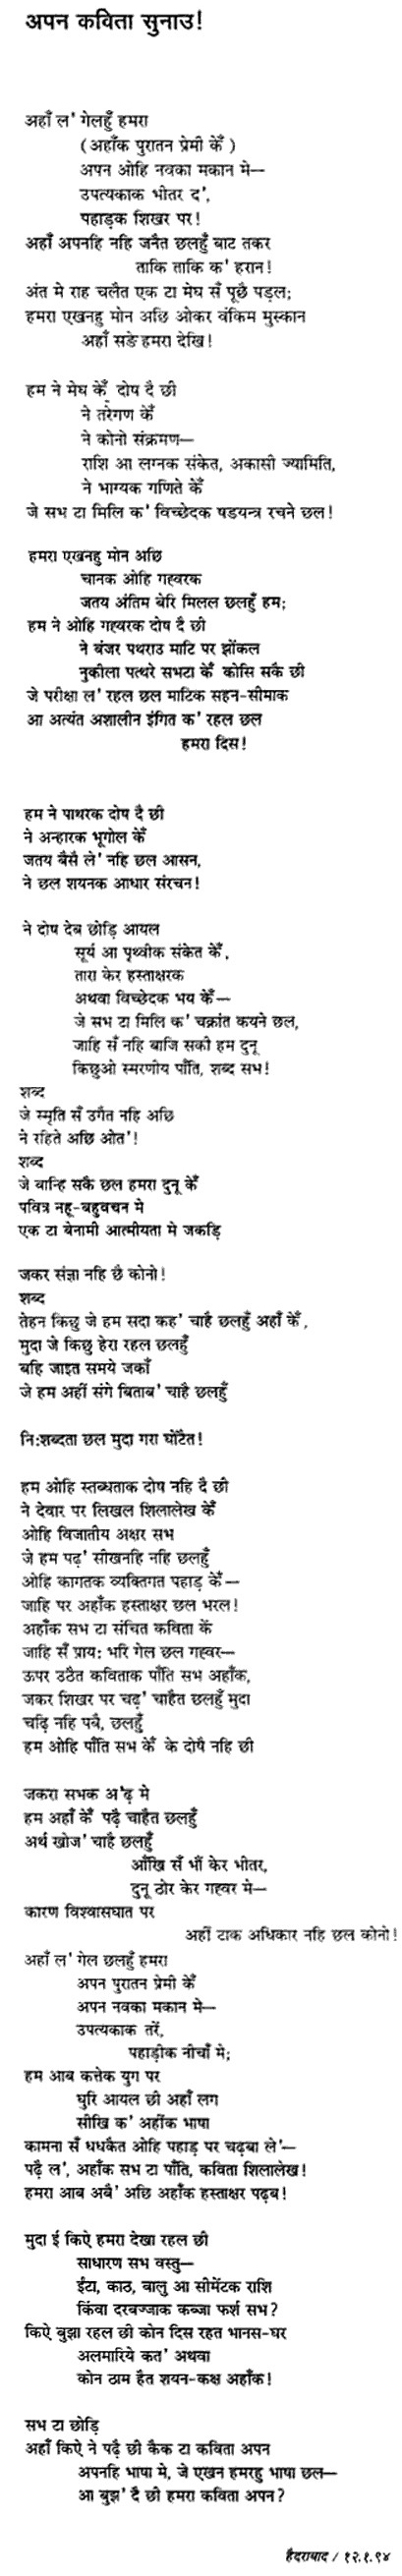 अपन कविता सुनाउ!
अहाँ ल' गेलहुँ हमरा
(अहाँक पुरातन प्रेमी केँ)
अपन ओहि नवका मकान मे—
उपत्यकाक भीतर द',
पहाड़क शिखर पर!
अहाँ अपनहि नहि जनैत छलहुँ बाट तकर
ताकि ताकि क' हरान!
अंत मे राह चलैत एक टा मेघ सँ पूछै पड़ल;
हमरा एखनहु मोन अछि ओकर वंकिम मुस्कान
अहाँ सङे हमरा देखि!
हम ने मेघ केँ दोष दै छी
ने तरेगण केँ
ने कोनो संक्रमण—
राशि आ लग्नक संकेत, अकासी ज्यामिति,
ने भाग्यक गणिते केँ
जे सभ टा मिलि क' विच्छेदक षडयन्त्र रचने छल!
हमरा एखनहु मोन अछि
चानक ओहि गह्वरक
जतय अंतिम बेरि मिलल छलहुँ हम;
हम ने ओहि गह्वरक दोष दै छी
ने बंजर पथराउ माटि पर झोंकल
नुकीला पत्थरे सभटा केँ कोसि सकै छी
जे परीक्षा ल' रहल छल माटिक सहन-सीमाक
आ अत्यंत अशालीन इंगित क' रहल छल
हमरा दिस!
हम ने पाथरक दोष दै छी
ने अन्हारक भूगोल केँ
जतय बैसै ले' नहि छल आसन,
ने छल शयनक आधार संरचन!
ने दोष देब छोड़ि आयल
सूर्य आ पृथ्वीक संकेत केँ,
तारा केर हस्ताक्षरक
अथवा विच्छेदक भय केँ—
जे सभ टा मिलि क' चक्रांत कयने छल,
जाहि सँ नहि बाजि सकी हम दुनू
किछुओ स्मरणीय पाँति, शब्द सभ!
शब्द
जे स्मृति सँ उगैत नहि अछि
ने रहिते अछि ओत'!
शब्द
जे बान्हि सकै छल हमरा दुनू केँ
पवित्र नहू-बहुवचन मे
एक टा बेनामी आत्मीयता मे जकड़ि
जकर संज्ञा नहि छै कोनो!
शब्द
तेहन किछु जे हम सदा कह' चाहै छलहुँ अहाँ केँ,
मुदा जे किछु हेरा रहल छलहुँ
बहि जाइत समये जकाँ
जे हम अहीं संगे बिताब' चाहै छलहुँ
नि:शब्दता छल मुदा गरा घोंटैत!
हम ओहि स्तब्धताक दोष नहि दै छी
ने देवार पर लिखल शिलालेख केँ
ओहि विजातीय अक्षर सभ
जे हम पढ़' सीखनहि नहि छलहुँ
ओहि कागतक व्यक्तिगत पहाड़ केँ—
जाहि पर अहाँक हस्ताक्षर छल भरल!
अहाँक सभ टा संचित कविता केँ
जाहि सँ प्राय: भरि गेल छल गह्वर—
ऊपर उठैत कविताक पाँति सभ अहाँक,
जकर शिखर पर चढ़' चाहैत छलहुँ मुदा
चढ़ि नहि पबै, छलहुँ
हम ओहि पाँति सभ केँ के दोषै नहि छी
जकरा सभक अ'ढ़ मे
हम अहाँ केँ पढ़ै चाहैत छलहुँ
अर्थ खोज' चाहै छलहुँ
आँखि सँ भौं केर भीतर,
दुनू ठोर केर गह्वर मे—
कारण विश्वासघात पर
अहीं टाक अधिकार नहि छल कोनो!
अहाँ ल' गेल छलहुँ हमरा
अपन पुरातन प्रेमी केँ
अपन नवका मकान मे—
उपत्यकाक तरें,
पहाड़ीक नीचाँ मे;
हम आब कत्तेक युग पर
घुरि आयल छी अहाँ लग
सीखि क' अहींक भाषा
कामना सँ धधकैत ओहि पहाड़ पर चढ़बा ले'—
पढ़ै ल', अहाँक सभ टा पाँति, कविता शिलालेख!
हमरा आब अबै' अछि अहाँक हस्ताक्षर पढ़ब!
मुदा ई किऐ हमरा देखा रहल छी
साधारण सभ वस्तु—
ईंटा, काठ, बालु आ सीमेंटक राशि
किंवा दरबज्जाक कब्जा फर्श सभ?
किऐ बुझा रहल छी कोन दिस रहत भानस-घर
अलमारिये कत' अथवा
कोन ठाम हैत शयन-कक्ष अहाँक!
सभ टा छोड़ि
अहाँ किऐ ने पढ़ै छी कैक टा कविता अपन
अपनहि भाषा मे, जे एखन हमरहु भाषा छल—
आ बुझ' दै छी हमरा कविता अपन?
हैदराबाद / १२.१.९४